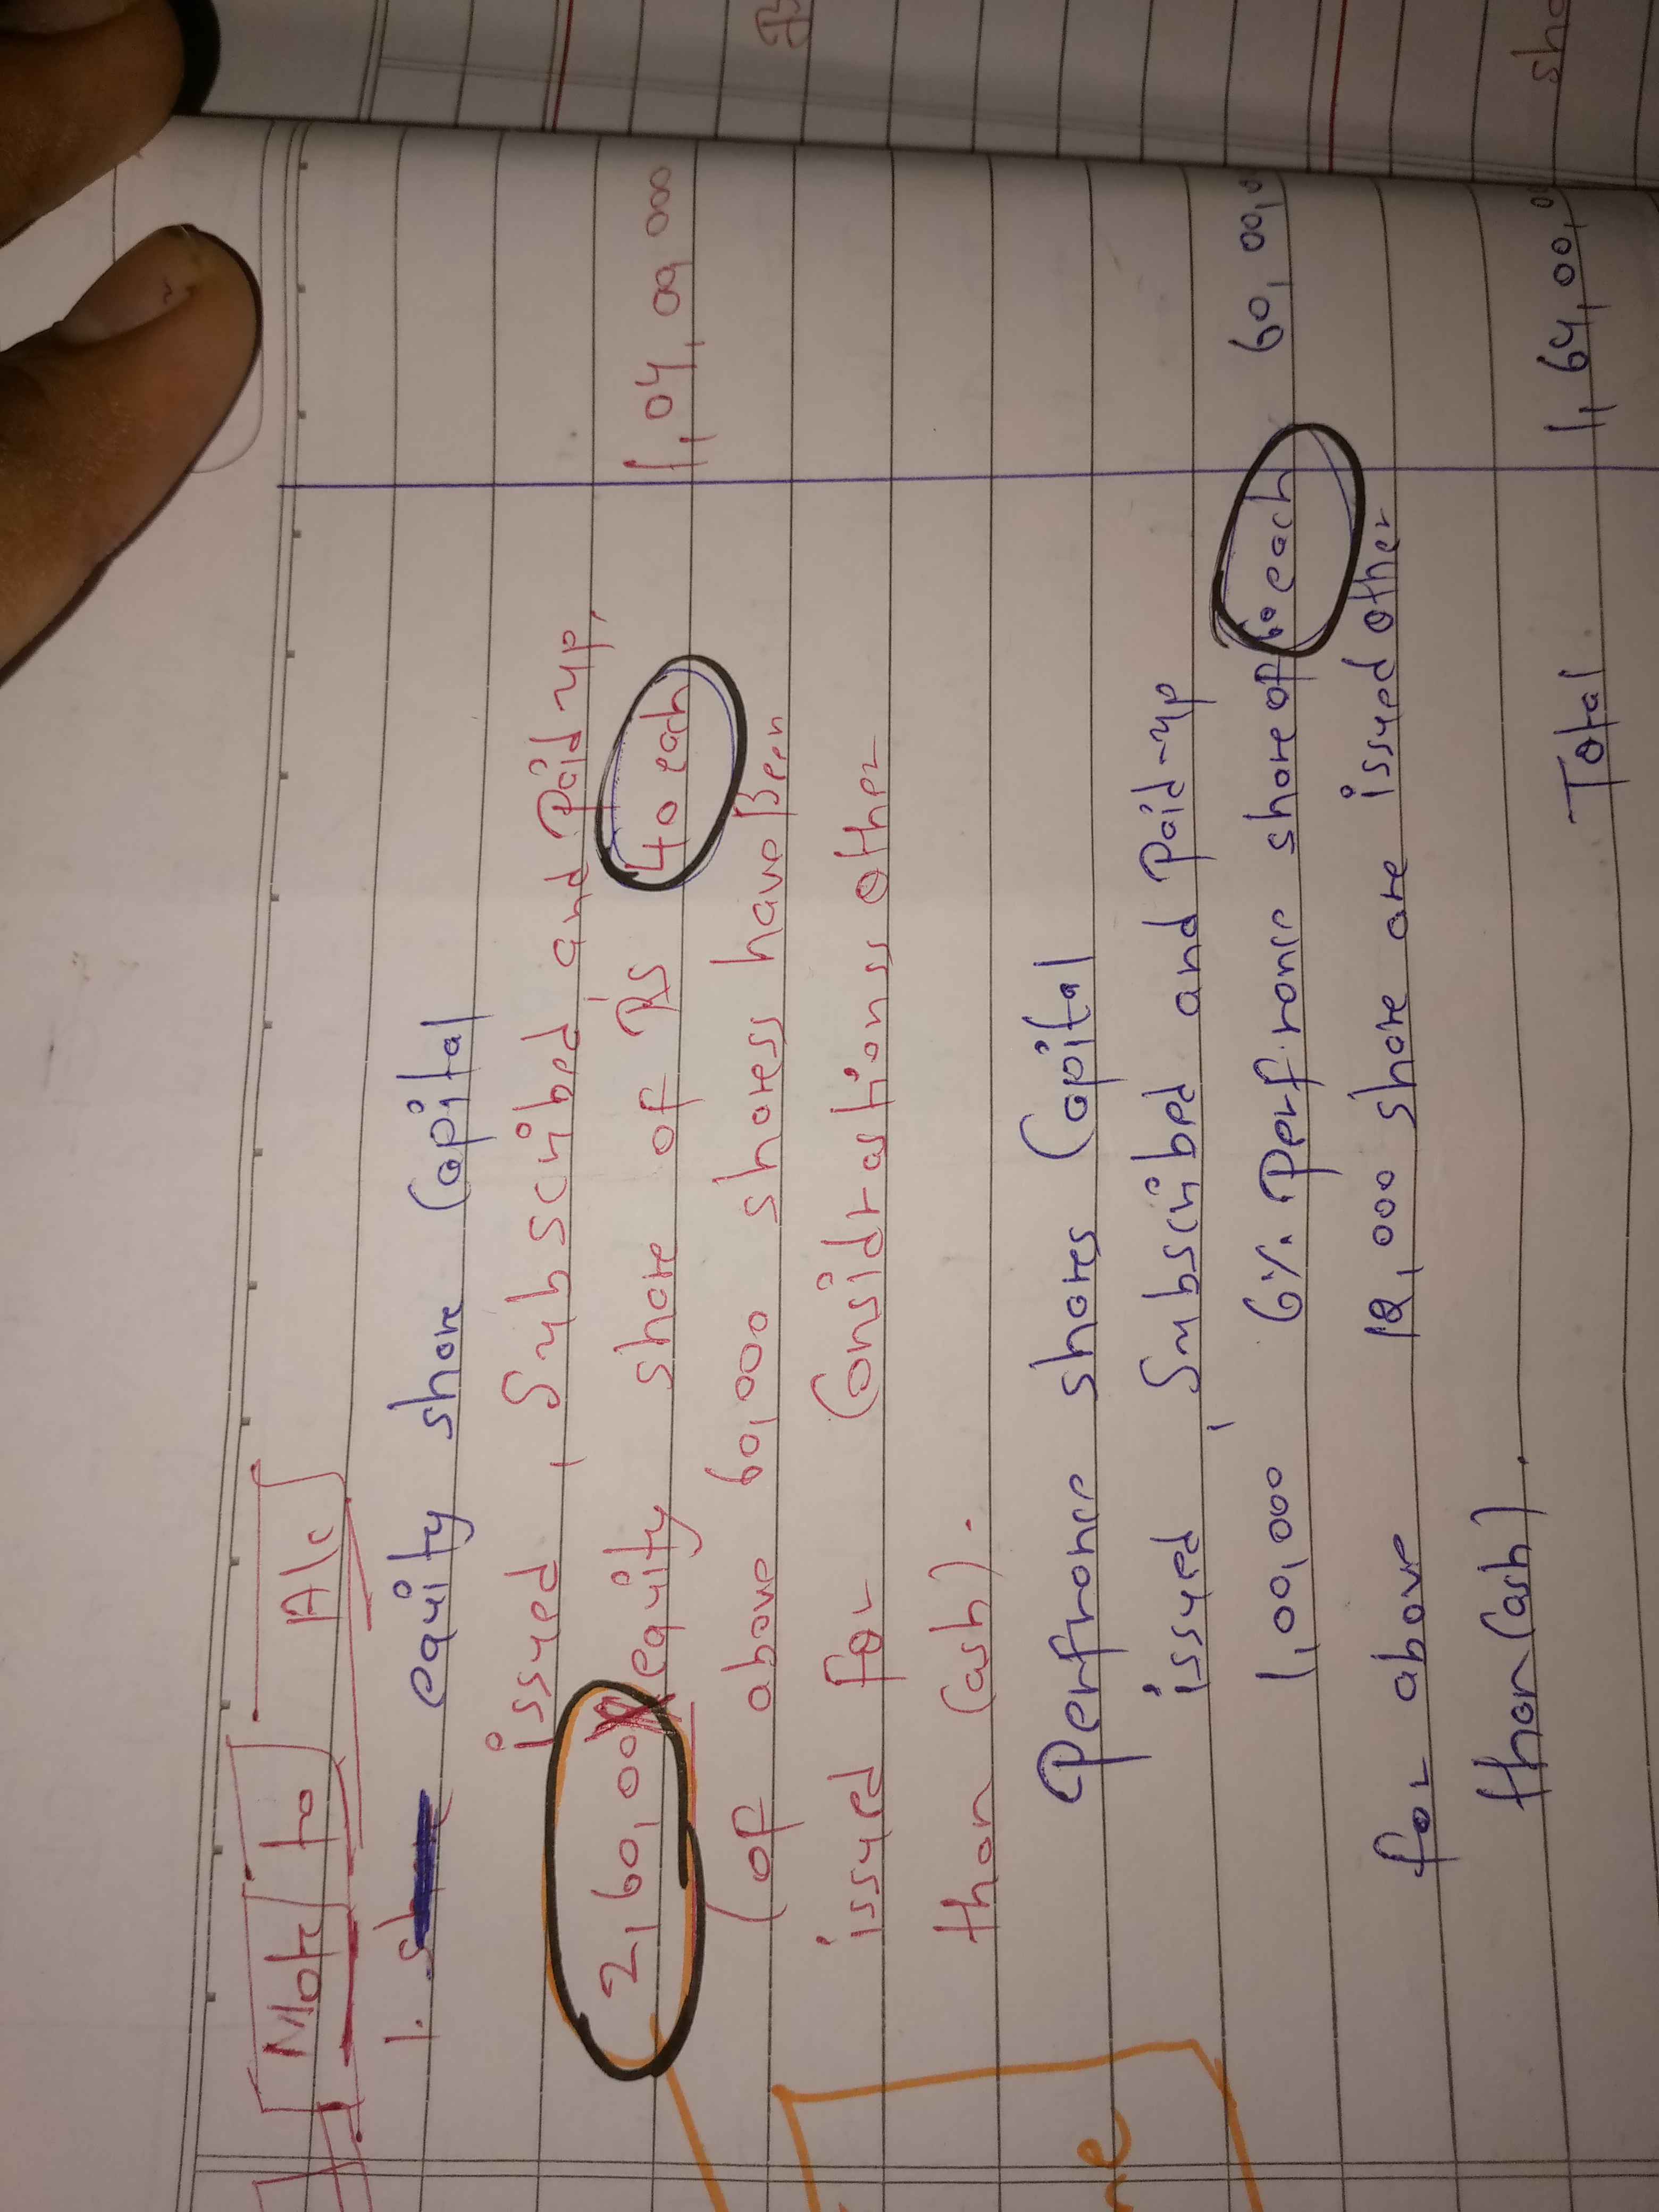 Note to A/c
1. equity share Capital
issued, Subscribed and Paid up,
2,60,00 equity share of Rs 40 each 1,04,00,000
(of above 60,000 sharess have Been
issued for Considrastionss other
than Cash).
Perfrance shares Capital
issued, Subscribed and Paid-up
1,00,000 6% Perfrance share of 60 each 60,00,0
for above 12,000 share are issued other
than Cash).
Total 1,64,00,0
sha